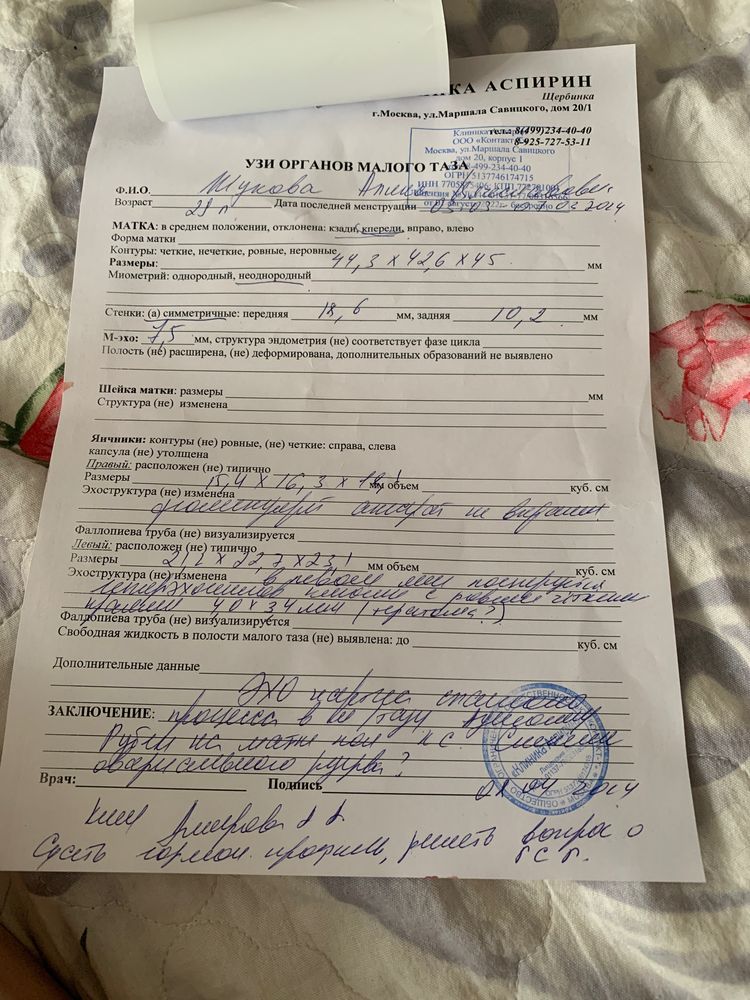 КА АСПИРИН
Щербинка
г.Москва, ул.Маршала Савицкого, дом 20/1
тел.: 8(499)234-40-40
8-925-727-53-11
Клиника
ООО «Контакт
Москва, ул.Маршала Савицкого
дом 20, корпус 1
8-499-234-40-40
ОГРН 5137746174715
УЗИ ОРГАНОВ МАЛОГО ТАЗА
Ф.И.О. Жукова
Возраст 29 л Дата последней менструации 03.2024
МАТКА: в среднем положении, отклонена: кзади, кпереди, вправо, влево
Форма матки
Контуры: четкие, нечеткие, ровные, неровные
Размеры: 44,3 х 42,6 х 45 мм
Миометрий: однородный, неоднородный
Стенки: (а) симметричные: передняя 18,6 мм, задняя 10,2 мм
М-эхо: 7,5 мм, структура эндометрия (не) соответствует фазе цикла
Полость (не) расширена, (не) деформирована, дополнительных образований не выявлено
Шейка матки: размеры мм
Структура (не) изменена
Яичники: контуры (не) ровные, (не) четкие: справа, слева
капсула (не) утолщена
Правый: расположен (не) типично
Размеры 15,4 х 16,3 х мм объем куб. см
Эхоструктура (не) изменена
фолликуляр аппарат не выражен
Фаллопиева труба (не) визуализируется
Левый: расположен (не) типично
Размеры мм объем куб. см
Эхоструктура (не) изменена в левом
с ровными четкими
4,0 х 3,4 мм (тератома?)
Фаллопиева труба (не) визуализируется
Свободная жидкость в полости малого таза (не) выявлена: до куб. см
Дополнительные данные
ЭХО картина спаечного
ЗАКЛЮЧЕНИЕ: процесса в м/тазу
Рубец на матке после кс. Снижение
овариального резерва?
Врач: Подпись 2024
Сдать гормон. профиль, решить вопрос о
ГСГ.